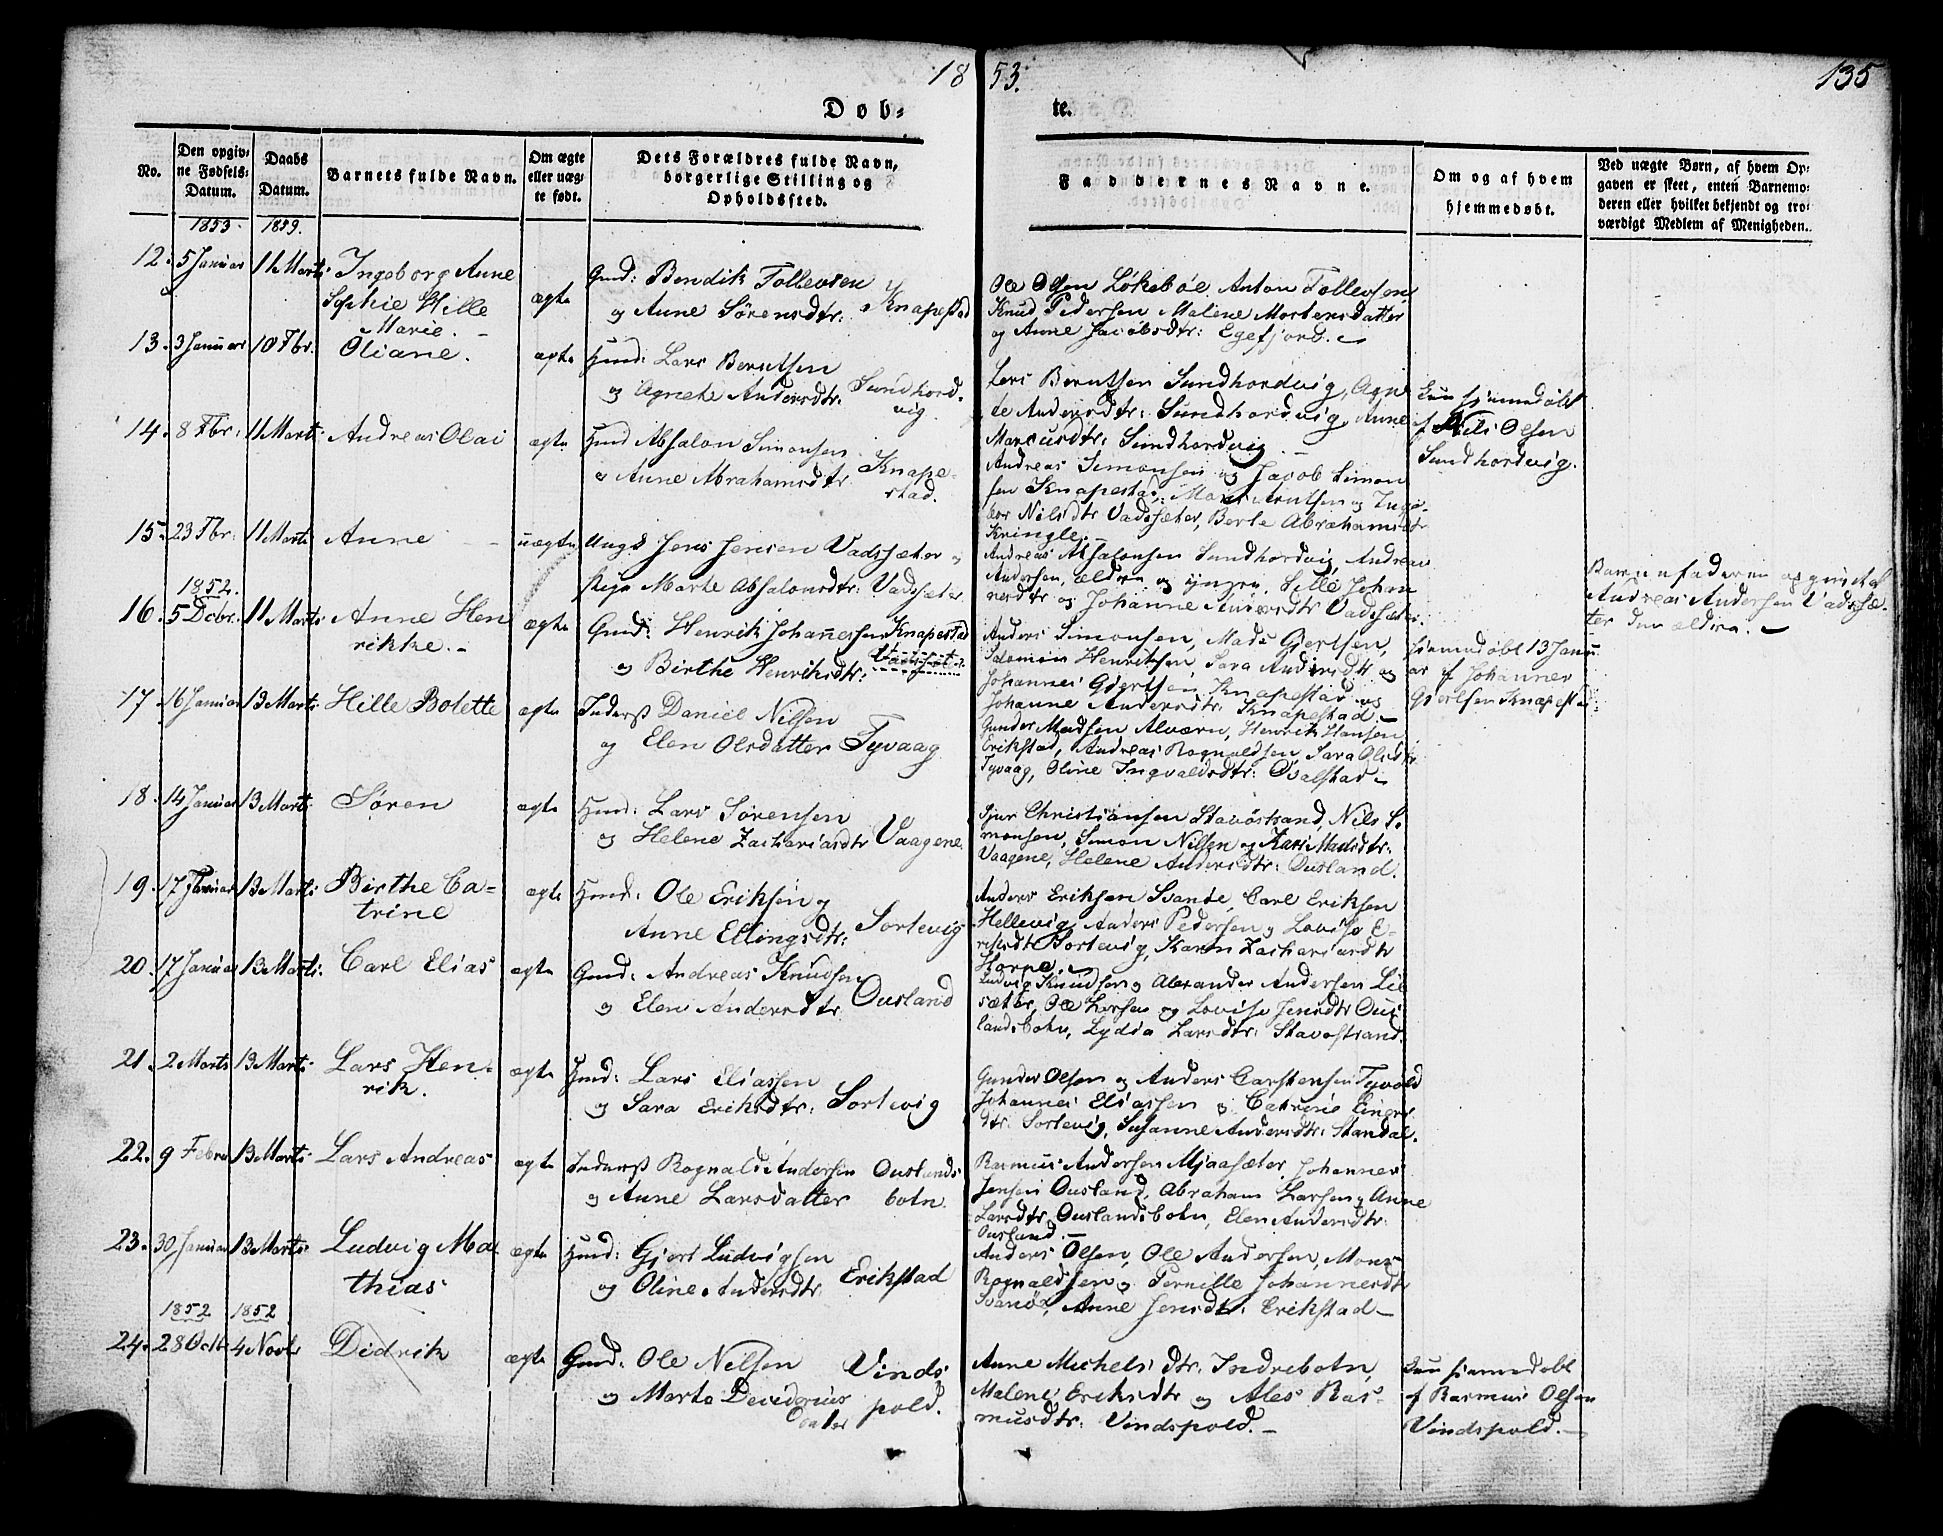 18 53. 135
Døb- te.
No.
Den opgiv-
ne Fødsels-
Datum.
Daabs
Datum.
Barnets fulde Navn.
Om ægte
eller uæg-
te født.
Dets Forældres fulde Navn,
borgerlige Stilling og
Opholdssted.
Faddernes Navne.
Om og af hvem
hjemmedøbt.
Ved uægte Børn, af hvem Op-
gaven er skeet, enten Barnemo-
deren eller hvilket bekjendt og tro-
værdigt Medlem af Menigheden.
1853. 1859.
12. 5 Januar 11 Marts Ingeborg Anne
Sophie Hille
Marie.
ægte
Gmd: Bendik Tollevsen
og Anne Sørensdtr: Knapestad
Ole Olsen Løkebøe Anton Tollevsen,
Knud Pedersen Malene Mortensdatter
og Anne Jacobsdtr: Egefjord.
13. 3 Januar 10 Fbr. Oliane. ægte
Hmd: Lars Berntsen
og Agnete Andersdtr: Sundhord-
vig.
Lars Berntsen Sundhordvig, Agne
te Andersdtr: Sundhordvig, Anne
Marcusdtr: Sundhordvig
hjemmedøbt
af Nils Olsen
Sundhordvig.
14. 8 Fbr: 11 Marts Andreas Olai ægte
Hmd Absalon Simonsen
og Anne Abrahamsdtr Knape-
stad.
Andreas Simonsen og Jacob Simon
sen Knapestad,
Nilsdtr Vadsæter, Berte Abrahamsdtr
Kringle.
15. 23 Fbr: 11 Marts Anne uægte
Ungk Jens Jensen Vadsæter
Pige Marte Absalonsdtr: Vadsæter
Andreas Absalonsen Sundhordvig, Andreas
Andersen, ældre og yngre, Hille Johan
nesdtr og Johanne Andersdtr Vadsæter.
Barnefaderen opgivet af
Andreas Andersen Vadsæ-
ter den ældre.
1852.
16. 5 Dcbr. 11 Marts Anne Hen
rikke.
ægte
Gmd: Henrik Johannessen Knapestad
og Birthe Henriksdtr: Vadsæter
Anders Simonsen, Mads Gjertsen,
Salomon Henriksen, Sara Andersdtr og
Johannes Gjertsen Knapestad og
Johanne Andersdtr: Knapestad.
hjemmedøbt 13 Janu
ar af Johannes
Gjertsen Knapestad
17. 16 Januar 13 Marts Hille Bolette ægte
Inderst Daniel Nilsen
og Elen Olsdatter Tyvaag
Gunder Madsen Alværn, Henrik Hansen
Erikstad, Andreas Rognaldsen, Sara Olsdtr
Tyvaag, Oline Ingvaldsdtr: Qvalstad
18. 14 Januar 13 Marts. Søren ægte
Hmd: Lars Sørensen
og Helene Zachariasdtr Vaagene.
Sjur Christiansen Stavøstrand, Nils Si
monsen, Simon Nilsen og Kari Madsdtr:
Vaagene, Helene Andersdtr: Ousland.
19. 17 Januar 13 Marts Birthe Ca-
trine
ægte
Hmd: Ole Eriksen og
Anne Ellingsdtr: Sortevig
Anders Eriksen Svanøe, Carl Eriksen
Hellevig, Anders Pedersen og Lovise E-
riksdtr Sortevig, Karen Zachariasdtr
Horpe.
20. 17 Januar 13 Marts. Carl Elias ægte
Gmd: Andreas Knudsen
og Elen Andersdtr Ousland
Ludvig Knudsen og Alexander Andersen Lil
sæter, Ole Larsen og Lovise Jensdtr Ous
landsbotn, Lydia Larsdtr: Stavøstrand.
21. 2 Marts 13 Marts Lars Hen-
rik.
ægte
Hmd: Lars Eliassen
og Sara Eriksdtr: Sortevig
Gunder Olsen og Anders Carstensen Tyvold
Johannes Eliassen og Catrine Einers
dtr: Sortevig, Susanne Andersdtr: Standal.
22. 9 Febru 13 Marts Lars Andreas ægte
Inderst Rognald Andersen Ouslands
og Anne Larsdatter botn.
Rasmus Andersen Mjaasæter Johannes
Jensen Ousland, Abraham Larsen og Anne
Larsdtr Ouslandsbotn, Elen Andersdtr:
Ousland.
23. 30 Januar 13 Marts Ludvig Ma
thias
ægte
Hmd: Gjert Ludvigsen
og Oline Andersdtr Erikstad
Anders Olsen, Ole Andersen, Mons
Rognaldsen og Pernille Johannesdtr
Svanøe, Anne Jensdtr: Erikstad
1852 1852
24. 28 Octb 4 Novbr Didrik ægte
Gmd: Ole Nilsen Vinds
og Marta Desideriusdatter pold.
Anne Michelsdtr. Indrebotn,
Malene Eriksdtr og Ales Ras-
musdtr: Vindspold.
hjemmedøbt
af Rasmus Olsen
Vindspold.